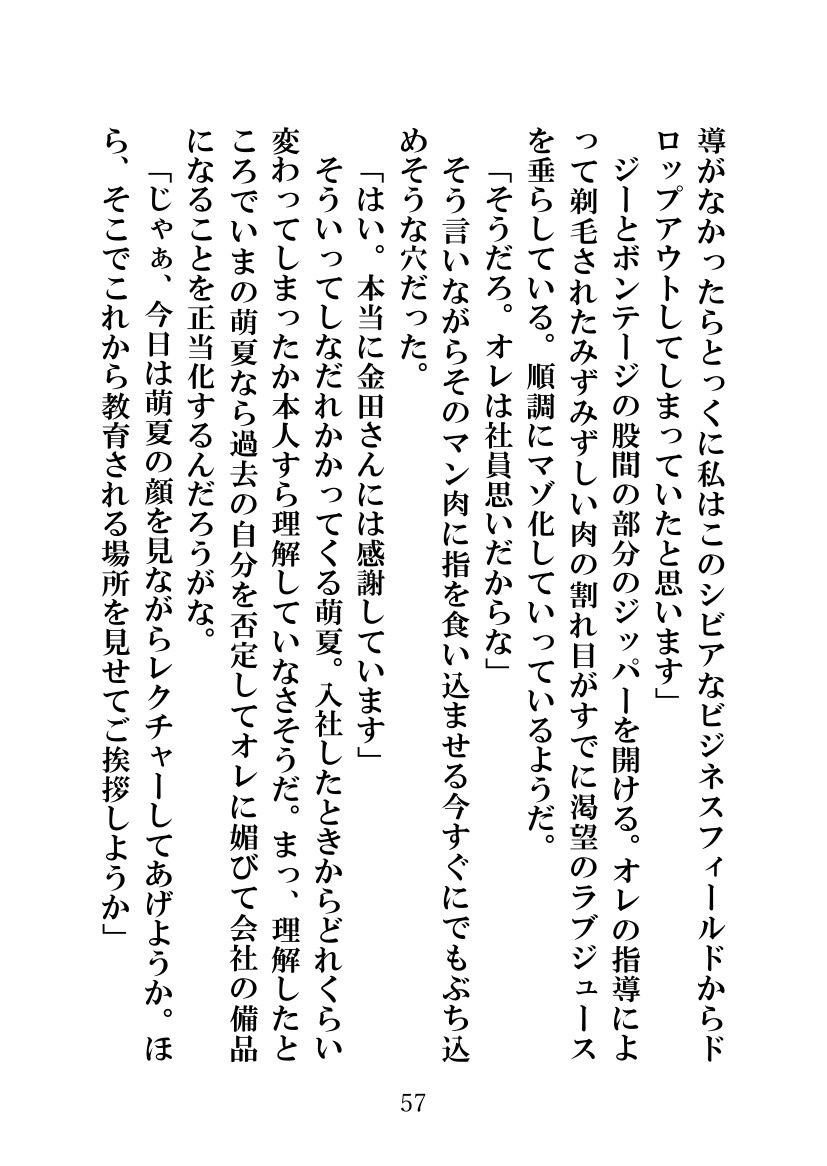 導がなかったらとっくに私はこのシビアなビジネスフィールドからド
ロップアウトしてしまっていたと思います」
　ジーとボンテージの股間の部分のジッパーを開ける。オレの指導によ
って剃毛されたみずみずしい肉の割れ目がすでに渇望のラブジュース
を垂らしている。順調にマゾ化していっているようだ。
「そうだろ。オレは社員思いだからな」
　そう言いながらそのマン肉に指を食い込ませる今すぐにでもぶち込
めそうな穴だった。
「はい。本当に金田さんには感謝しています」
　そういってしなだれかかってくる萌夏。入社したときからどれくらい
変わってしまったか本人すら理解していなさそうだ。まっ、理解したと
ころでいまの萌夏なら過去の自分を否定してオレに媚びて会社の備品
になることを正当化するんだろうがな。
「じゃぁ、今日は萌夏の顔を見ながらレクチャーしてあげようか。ほ
ら、そこでこれから教育される場所を見せてご挨拶しようか」
57